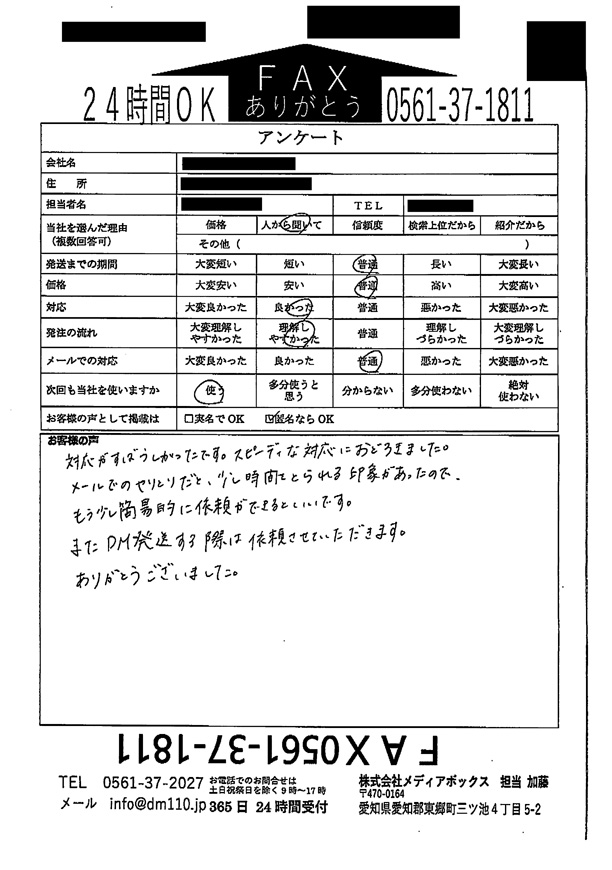 FAX
ありがとう
24時間OK 0561-37-1811
アンケート
会社名
住 所
担当者名 TEL
当社を選んだ理由 (複数回答可) 価格 人から聞いて 信頼度 検索上位だから 紹介だから
その他 ( )
発送までの期間 大変短い 短い 普通 長い 大変長い
価格 大変安い 安い 普通 高い 大変高い
対応 大変良かった 良かった 普通 悪かった 大変悪かった
発注の流れ 大変理解しやすかった 理解しやすかった 普通 理解しづらかった 大変理解しづらかった
メールでの対応 大変良かった 良かった 普通 悪かった 大変悪かった
次回も当社を使いますか 使う 多分使うと思う 分からない 多分使わない 絶対使わない
お客様の声として掲載は □実名でOK ☑匿名ならOK
お客様の声
対応がすばらしかったです。スピーディな対応におどろきました。
メールでのやりとりだと、少し時間をとられる印象があったので、
もう少し簡易的に依頼ができるといいです。
またDM発送する際は依頼させていただきます。
ありがとうございました。
FAX0561-37-1811
TEL 0561-37-2027 お電話でのお問合せは 土日祝祭日を除く9時~17時
メール info@dm110.jp 365日24時間受付
株式会社メディアボックス 担当 加藤
〒470-0164
愛知県愛知郡東郷町三ツ池4丁目5-2